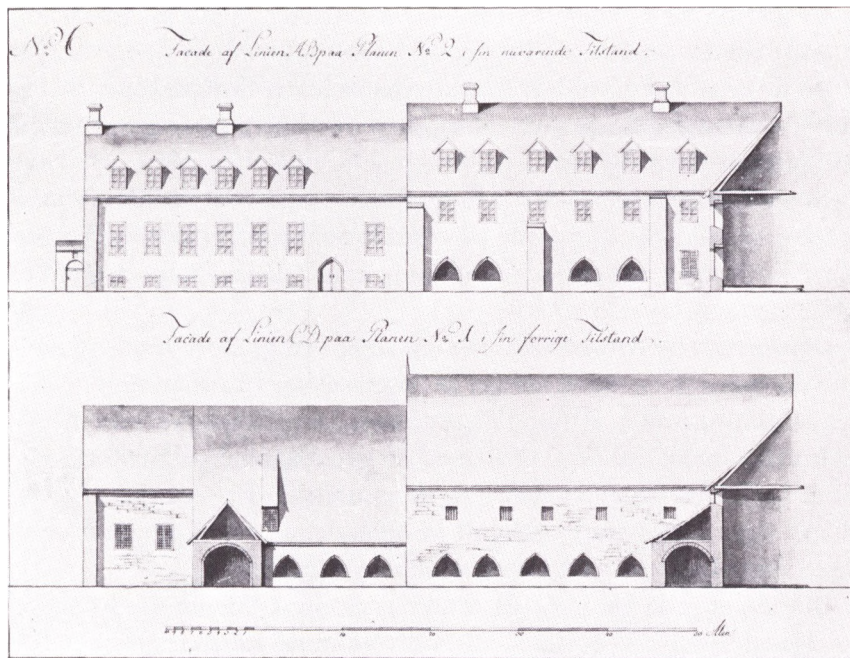 No. 6
Facade af Linien AB paa Planen No. 2 i sin nuværende Tilstand.
Facade af Linien CD paa Planen No. 1 i sin forrige Tilstand.
10 20 30 40 50 Alen